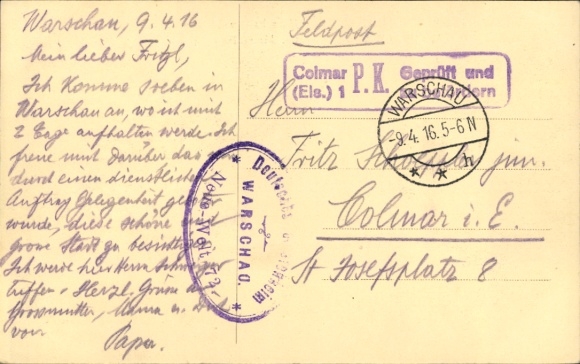 Warschau, 9.4.16
Mein lieber Fritzl,
Ich komme soeben in
Warschau an, wo ich mich
2 Tage aufhalten werde. Ich
freue mich darüber das
durch einen dienstlichen
Auftrag Gelegenheit
wurde, diese schöne und
grosse Stadt zu
Ich werde hier Herrn
treffen. Herzl. Gruss
Grossmutter, Mama u.
von
Papa.
Feldpost
Colmar (Els.) 1 P. K. Geprüft und
WARSCHAU
-9.4.16.5-6N
* * h
Herrn
Fritz jun.
Colmar i. E.
St Josefsplatz 8
WARSCHAU.